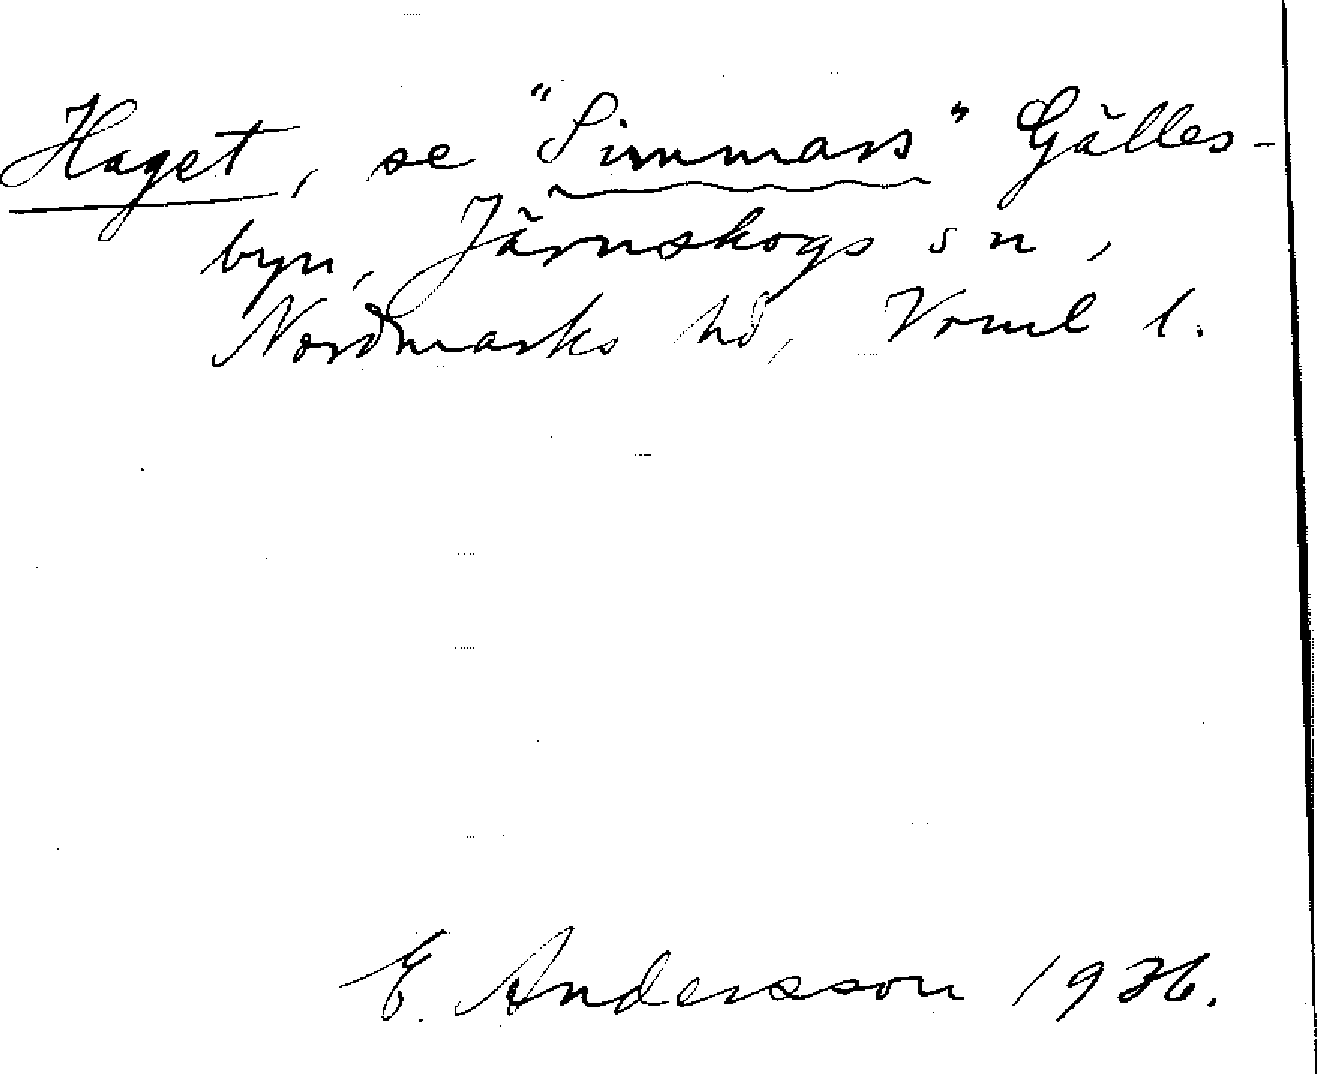 Haget, se "Simmars" Gälles-
byn, Järnskogs sn,
Nordmarks hd, Vrml l.
E. Andersson 1936.